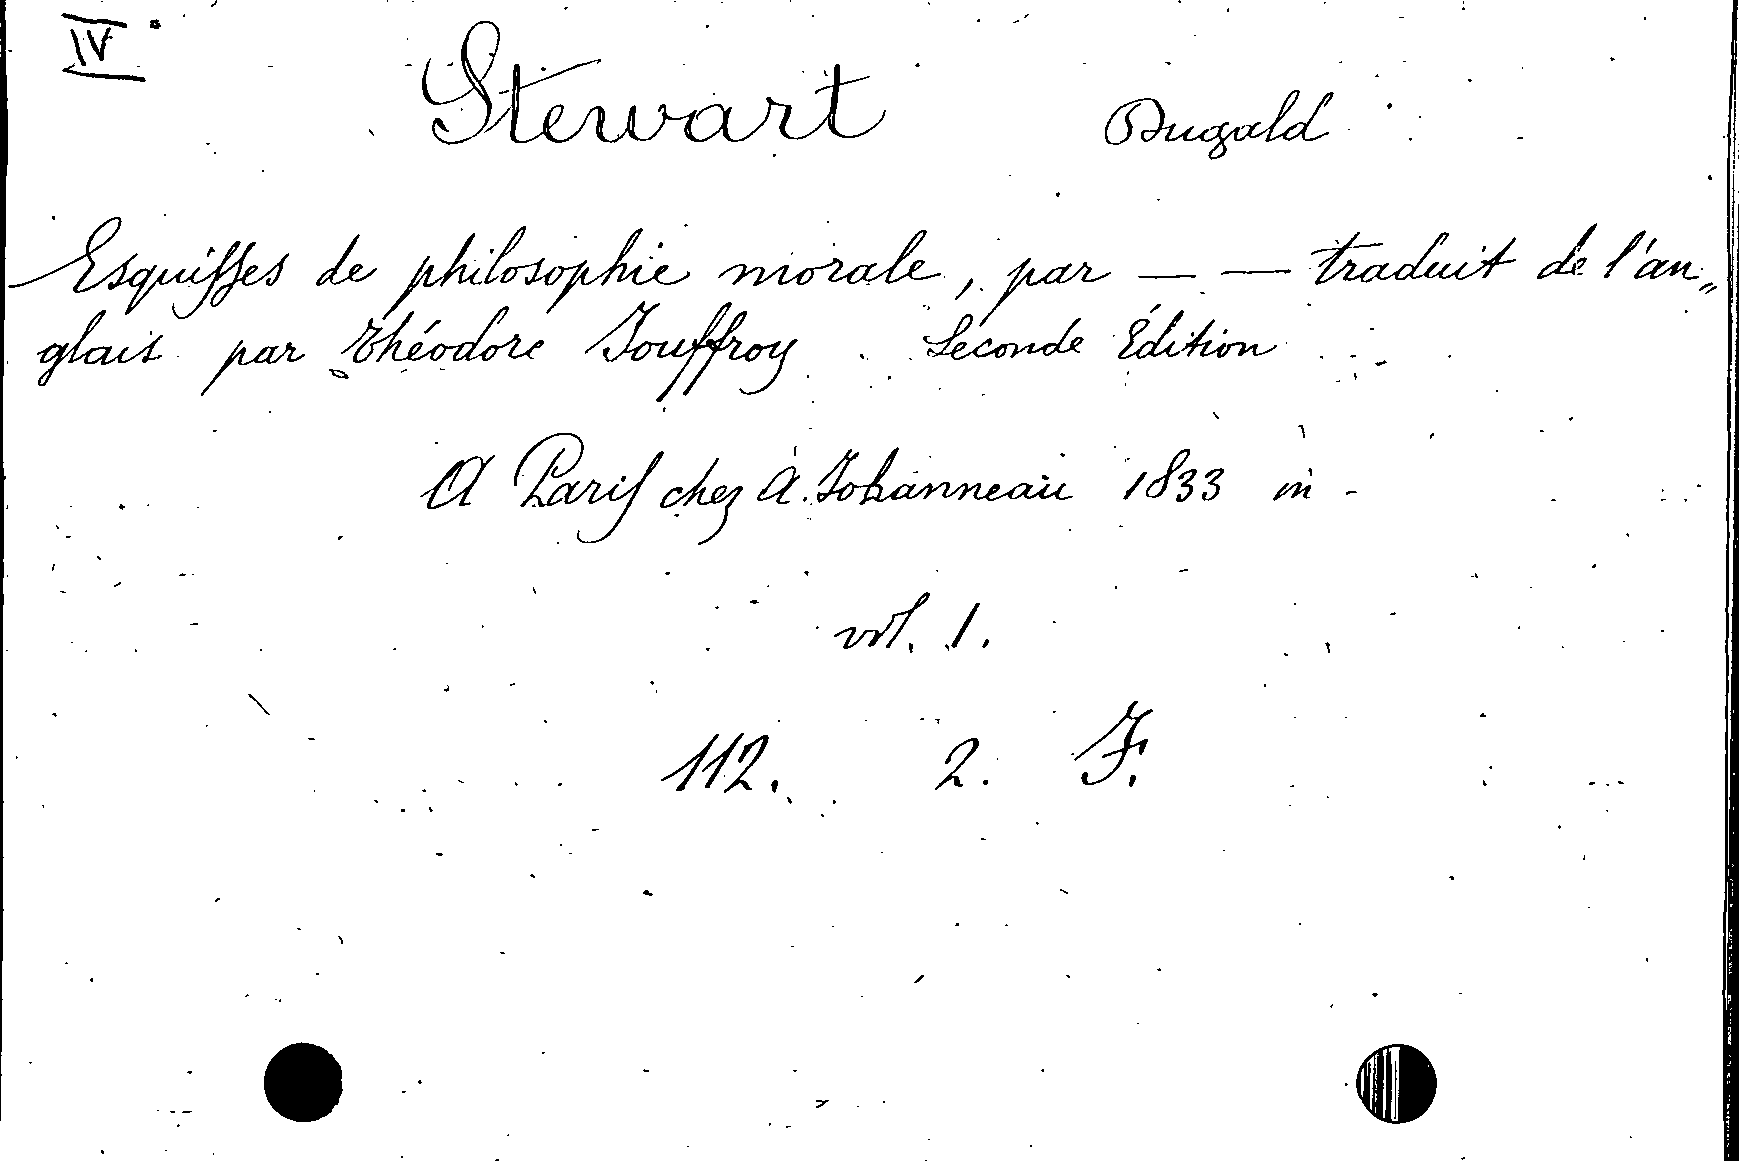 IV
Stewart Dugald
Esquisses de philosophie morale, par — — traduit de l'an„
glais par Théodore Jouffroy Seconde Édition
A Paris chez A. Johanneau 1833 in -
vol. 1.
112. 2. F.